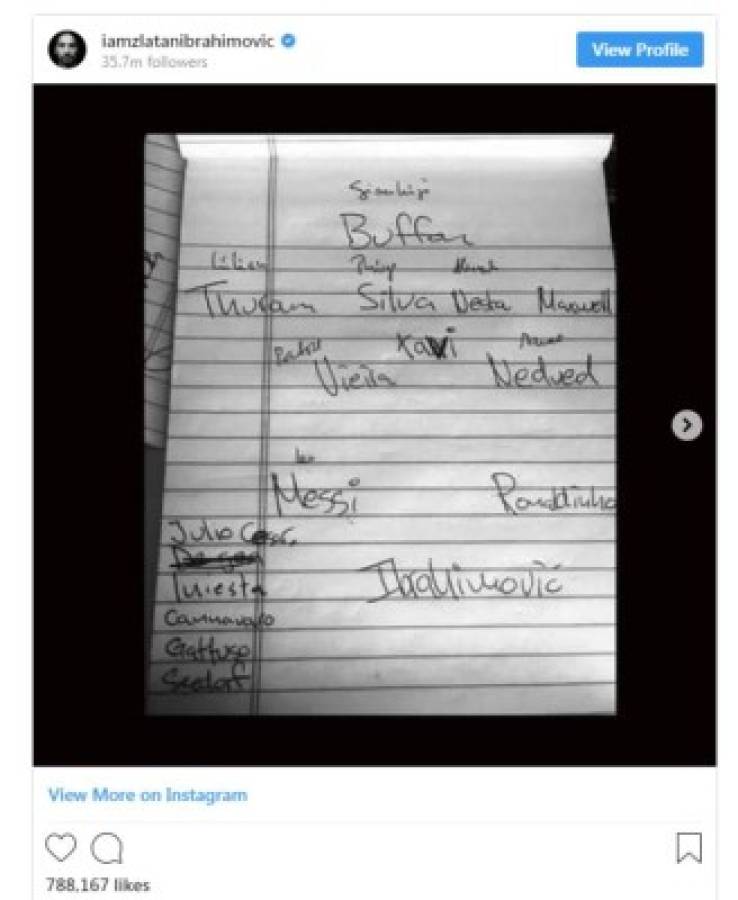 iamzlatanibrahimovic
35.7m followers
View Profile
Buffon
Lilian
Thuram Silva Nesta Maxwell
Xavi
Vieira Nedved
Leo
Messi Ronaldinho
Julio Cesar
Iniesta Ibrahimović
Cannavaro
Gattuso
Seedorf
View More on Instagram
788,167 likes